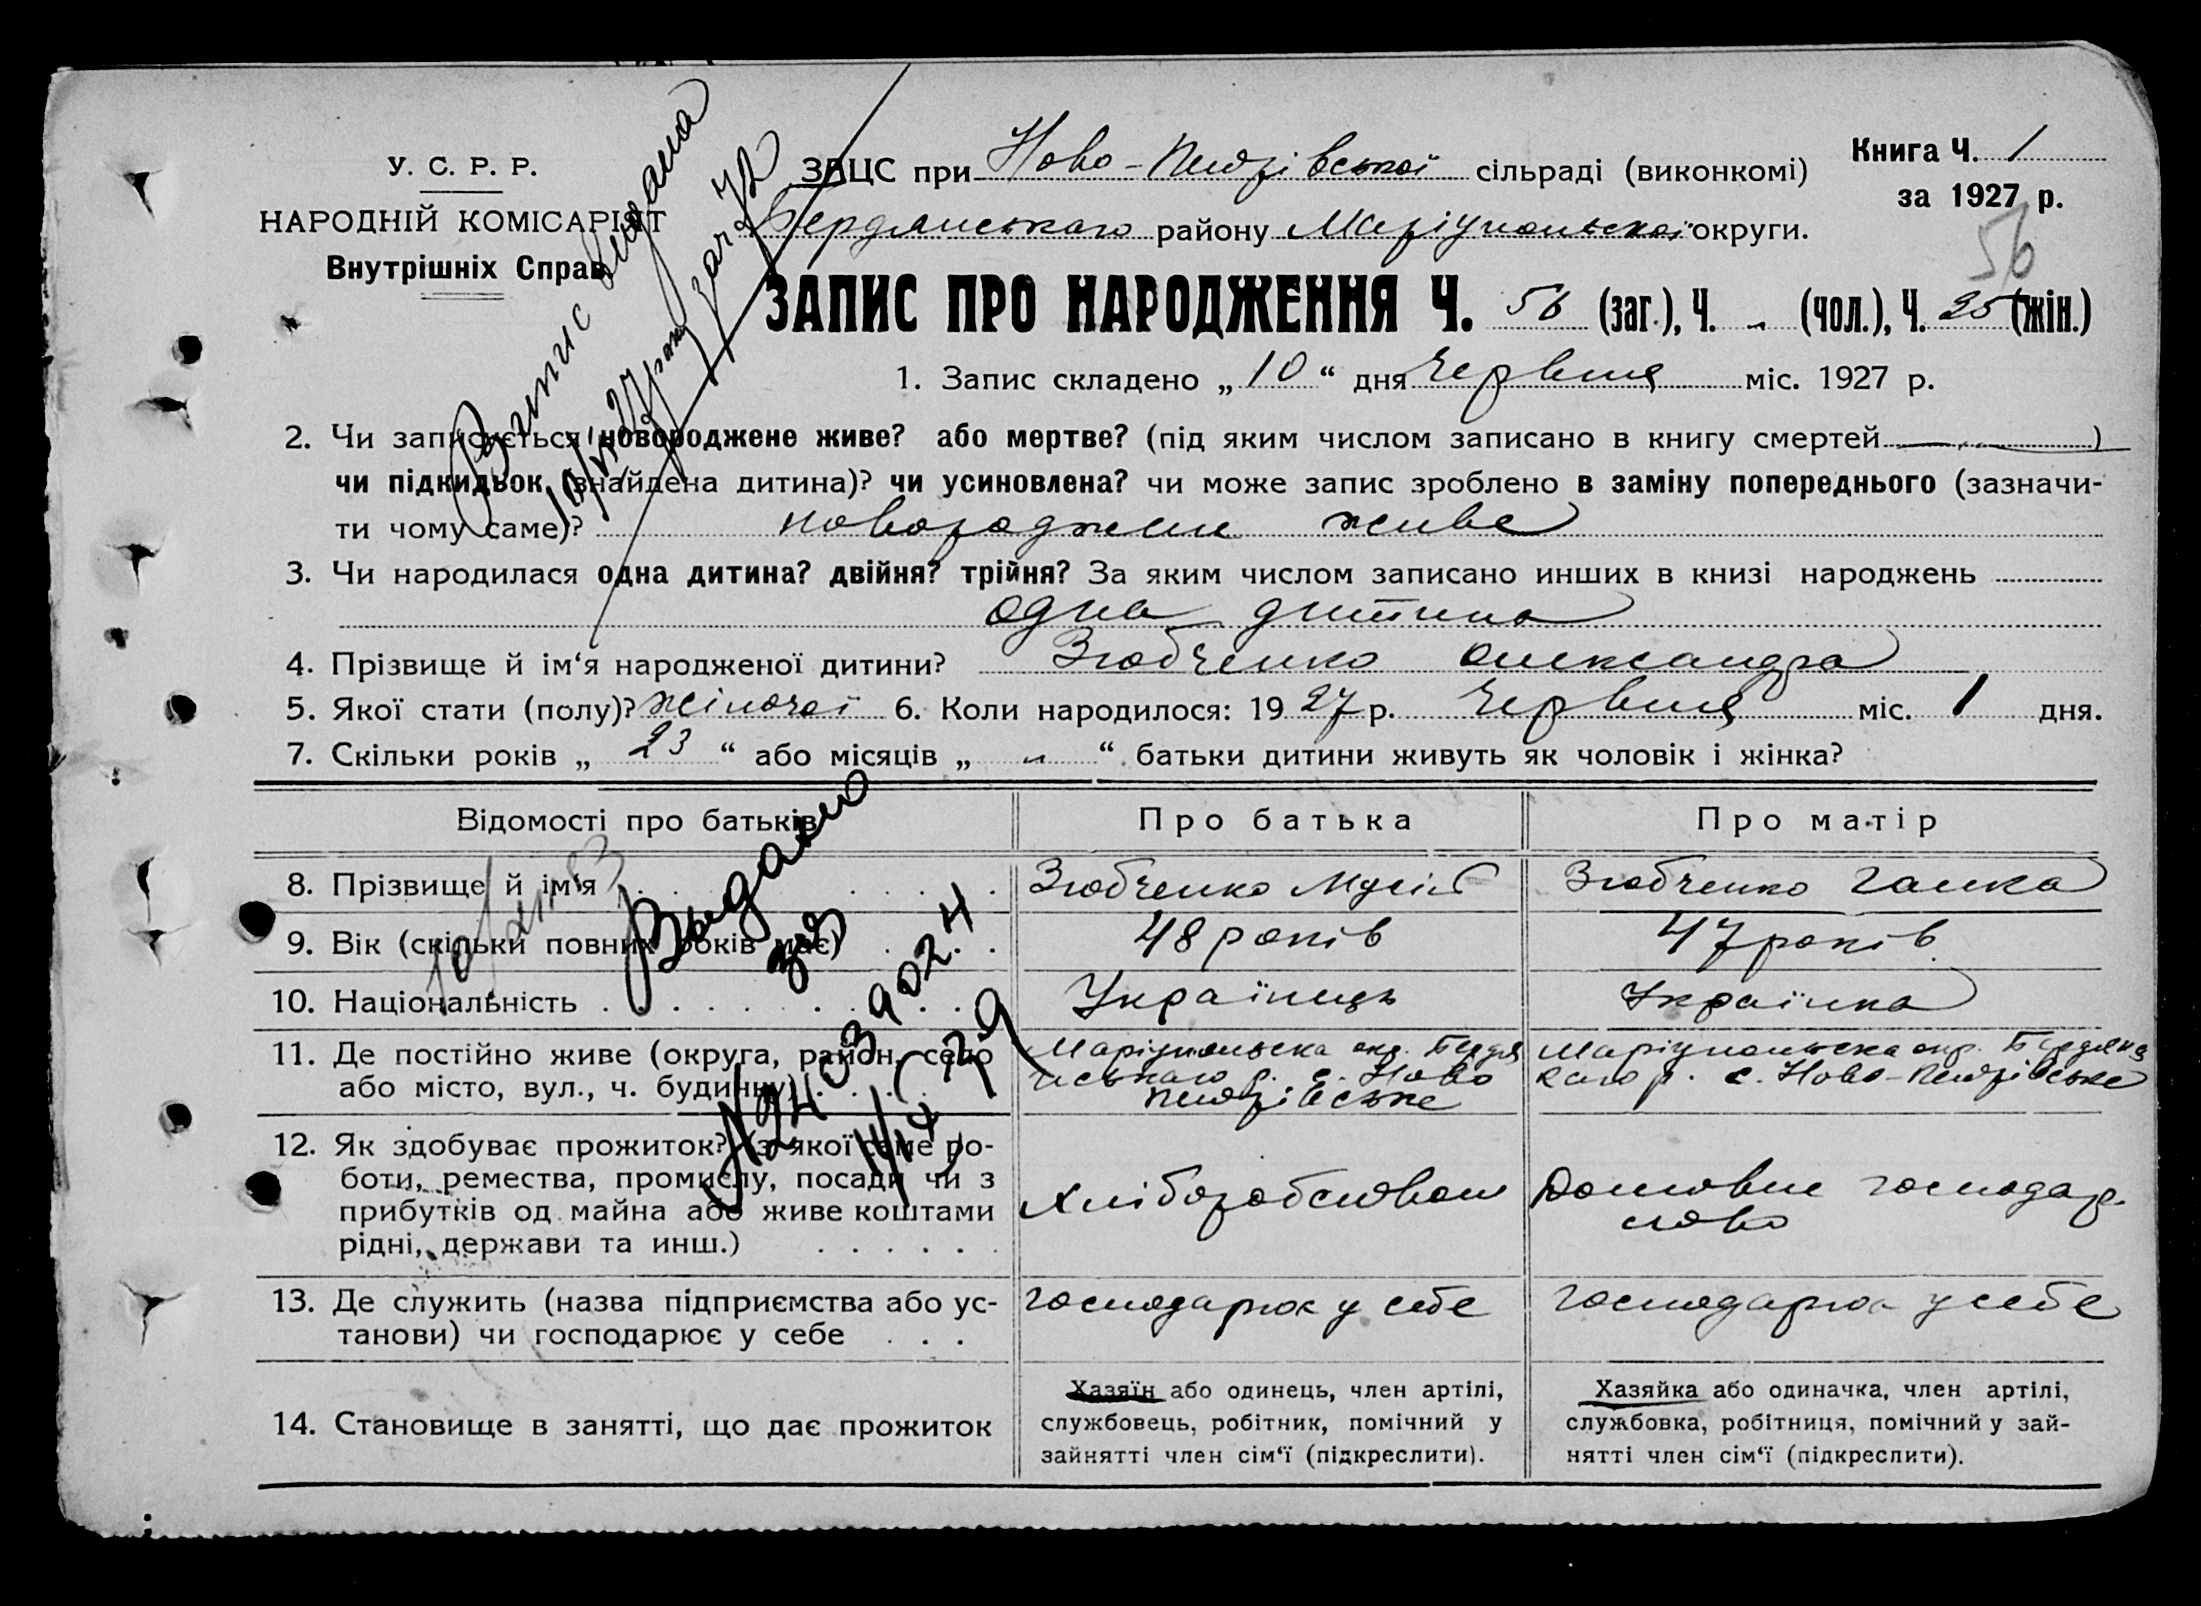 У. С. Р. Р.
НАРОДНІЙ КОМІСАРІЯТ
Внутрішніх Справ
ЗАЦС при Ново-Петрівської сільраді (виконкомі)
Бердянського району Маріупольської округи.
Книга Ч. 1
за 1927 р.
56
ЗАПИС ПРО НАРОДЖЕННЯ Ч. 56 (заг.), Ч. - (чол.), Ч. 25 (жін.)
1. Запис складено „ 10 “ дня Червня міс. 1927 р.
2. Чи записується новороджене живе? або мертве? (під яким числом записано в книгу смертей )
чи підкидьок (знайдена дитина)? чи усиновлена? чи може запис зроблено в заміну попереднього (зазначи-
ти чому саме)? новороджене живе
3. Чи народилася одна дитина? двійня? трійня? За яким числом записано инших в книзі народжень
одна дитина
4. Прізвище й ім‘я народженої дитини? Зюбченко Олександра
5. Якої стати (полу)? жіночої 6. Коли народилося: 1927 р. Червня міс. 1 дня.
7. Скільки років „ 23 “ або місяців „ - “ батьки дитини живуть як чоловік і жінка?
Відомості про батьків Про батька Про матір
8. Прізвище й ім‘я Зюбченко Мусій Зюбченко Ганка
9. Вік (скільки повних років має) 48 років 47 років
10. Національність Українець Українка
11. Де постійно живе (округа, район, село
або місто, вул., ч. будинку)
Маріупольська окр. Бердя
нського р. с. Ново
Петрівське
Маріупольська окр. Бердянс
кого р. с. Ново-Петрівське
12. Як здобуває прожиток? (з якої саме ро-
боти, ремества, промислу, посади чи з
прибутків од майна або живе коштами
рідні, держави та инш.)
Хліборобством
Домовне господар
ство
13. Де служить (назва підприємства або ус-
танови) чи господарює у себе
господарює у себе
господарює у себе
14. Становище в занятті, що дає прожиток
Хазяїн або одинець, член артілі,
службовець, робітник, помічний у
зайнятті член сім‘ї (підкреслити).
Хазяйка або одиначка, член артілі,
службовка, робітниця, помічний у зай-
нятті член сім‘ї (підкреслити).
Випис видана
Выдано